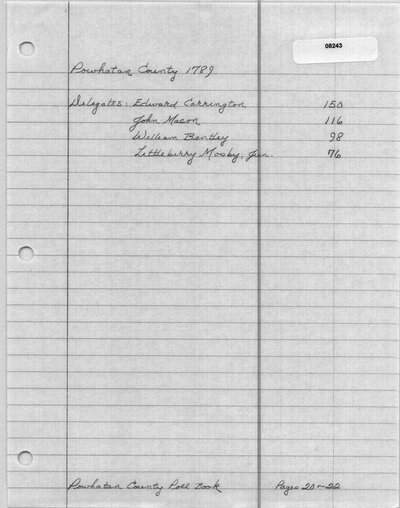 08243
Powhatan County 1789
Delegates: Edward Carrington 150
John Mason 116
William Bentley 98
Littleberry Mosby, Jun. 76
Powhatan County Poll Book Pages 20-22